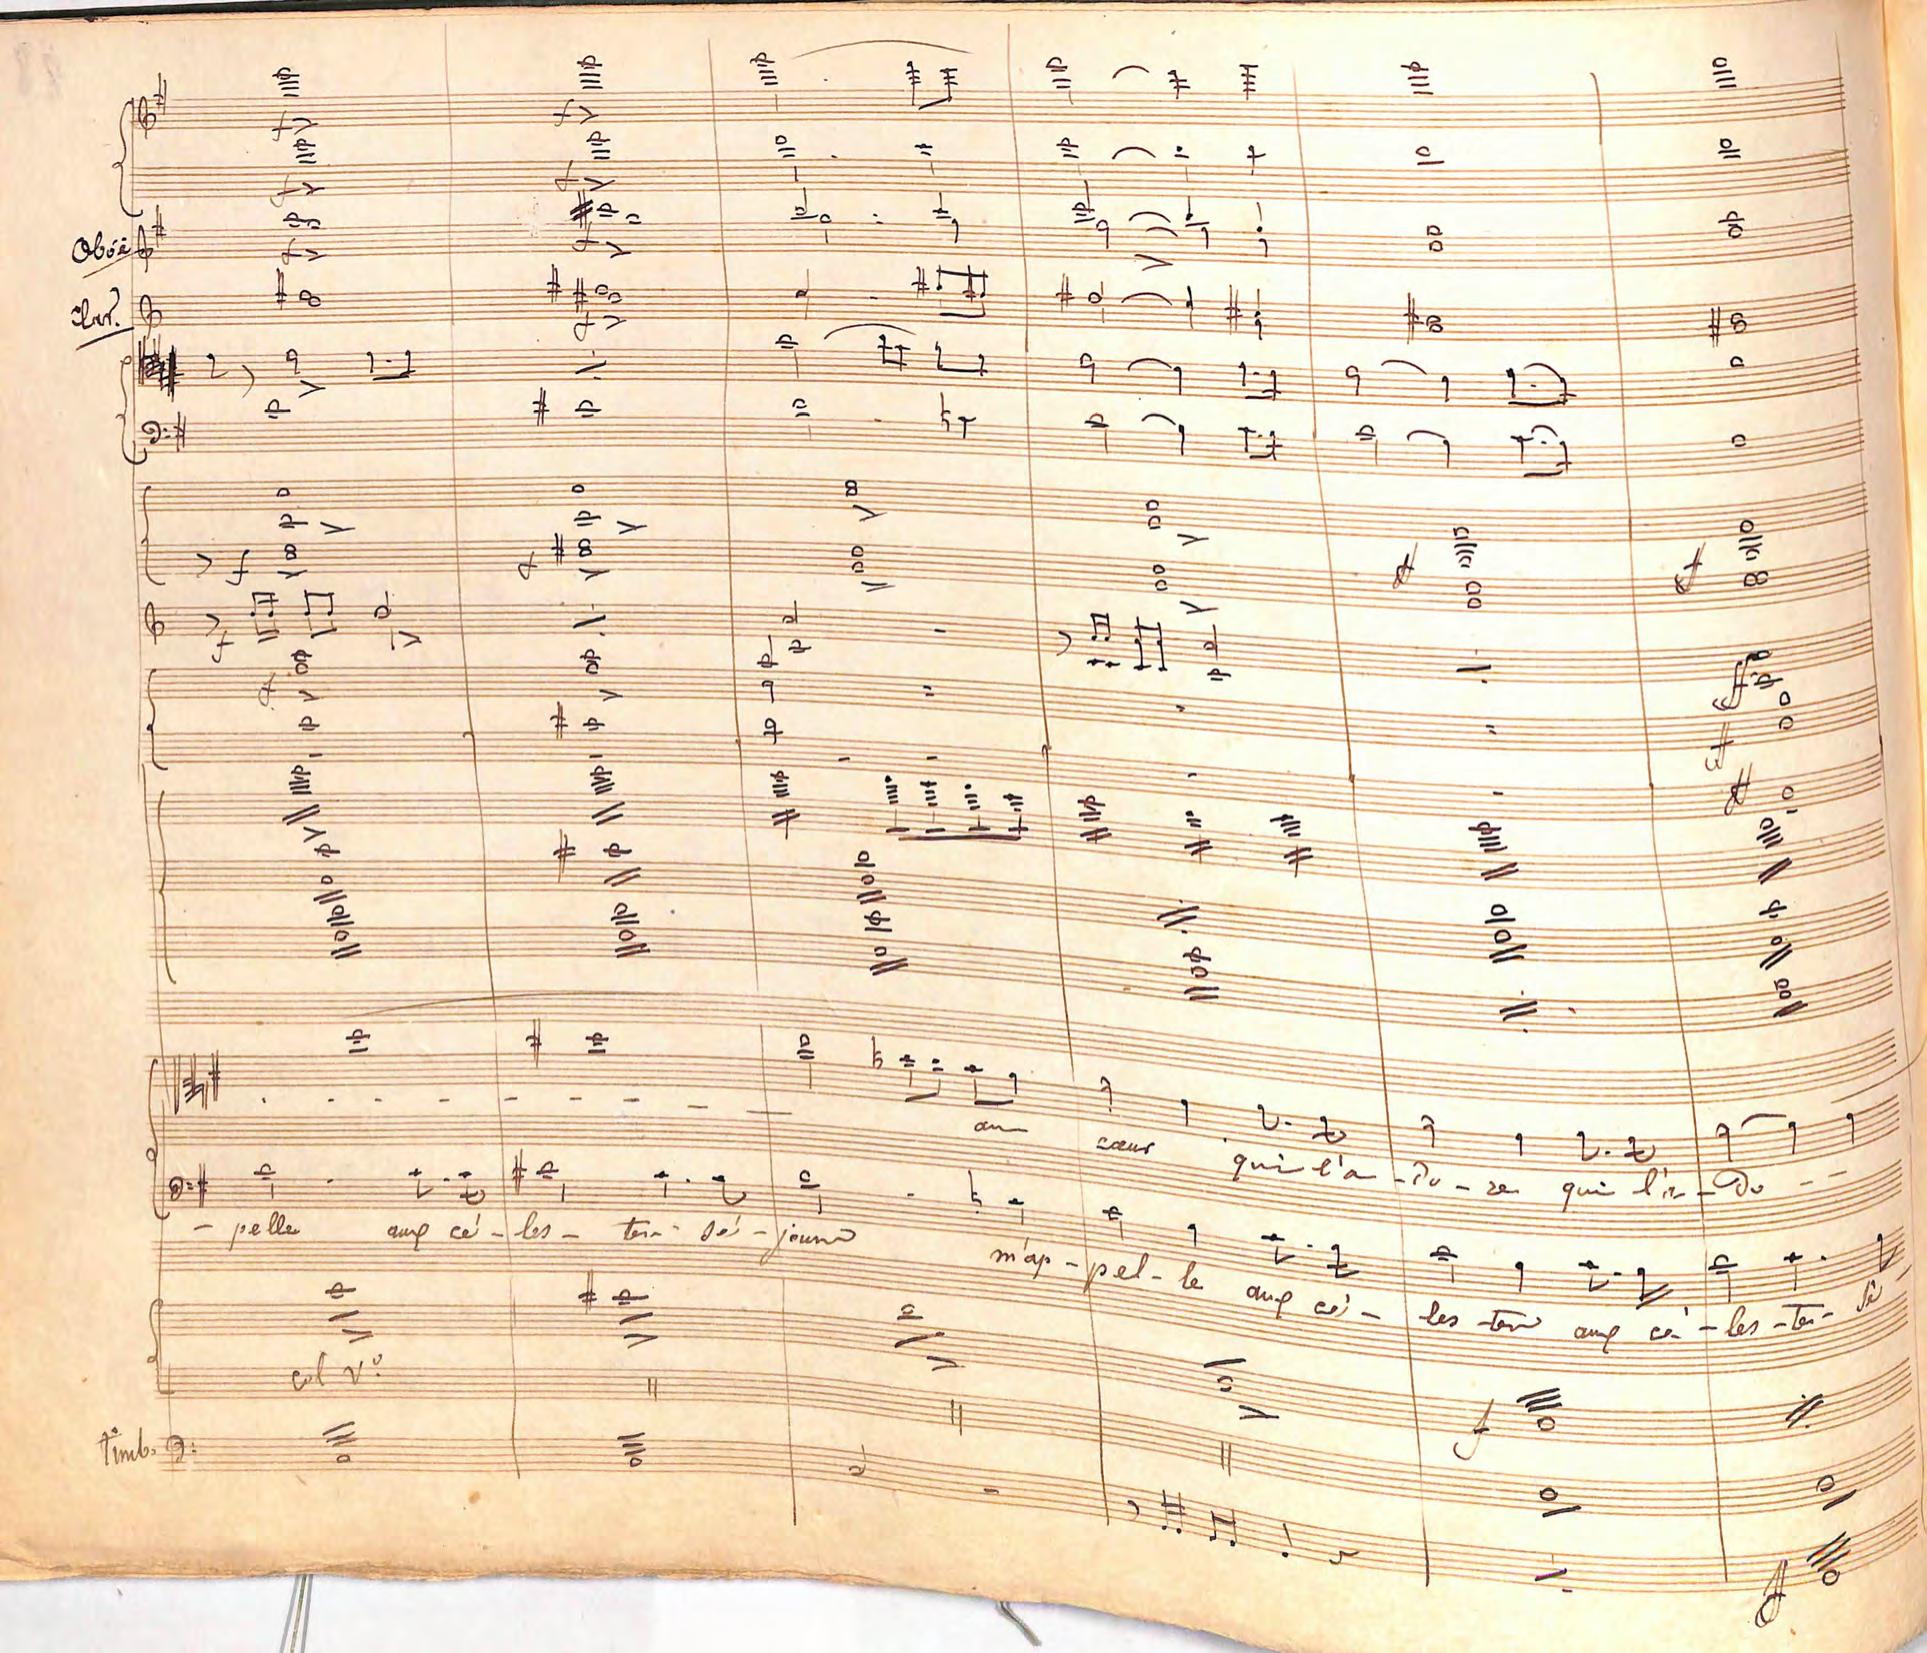 Oboè
f f
Clar.
f
au cœur qui l'a - do - re qui l'a - do
- pelle aux cé - les - tes sé - jours m'ap - pel - le aux cé - les - tes aux cé - les - tes
col Vº
Timb.